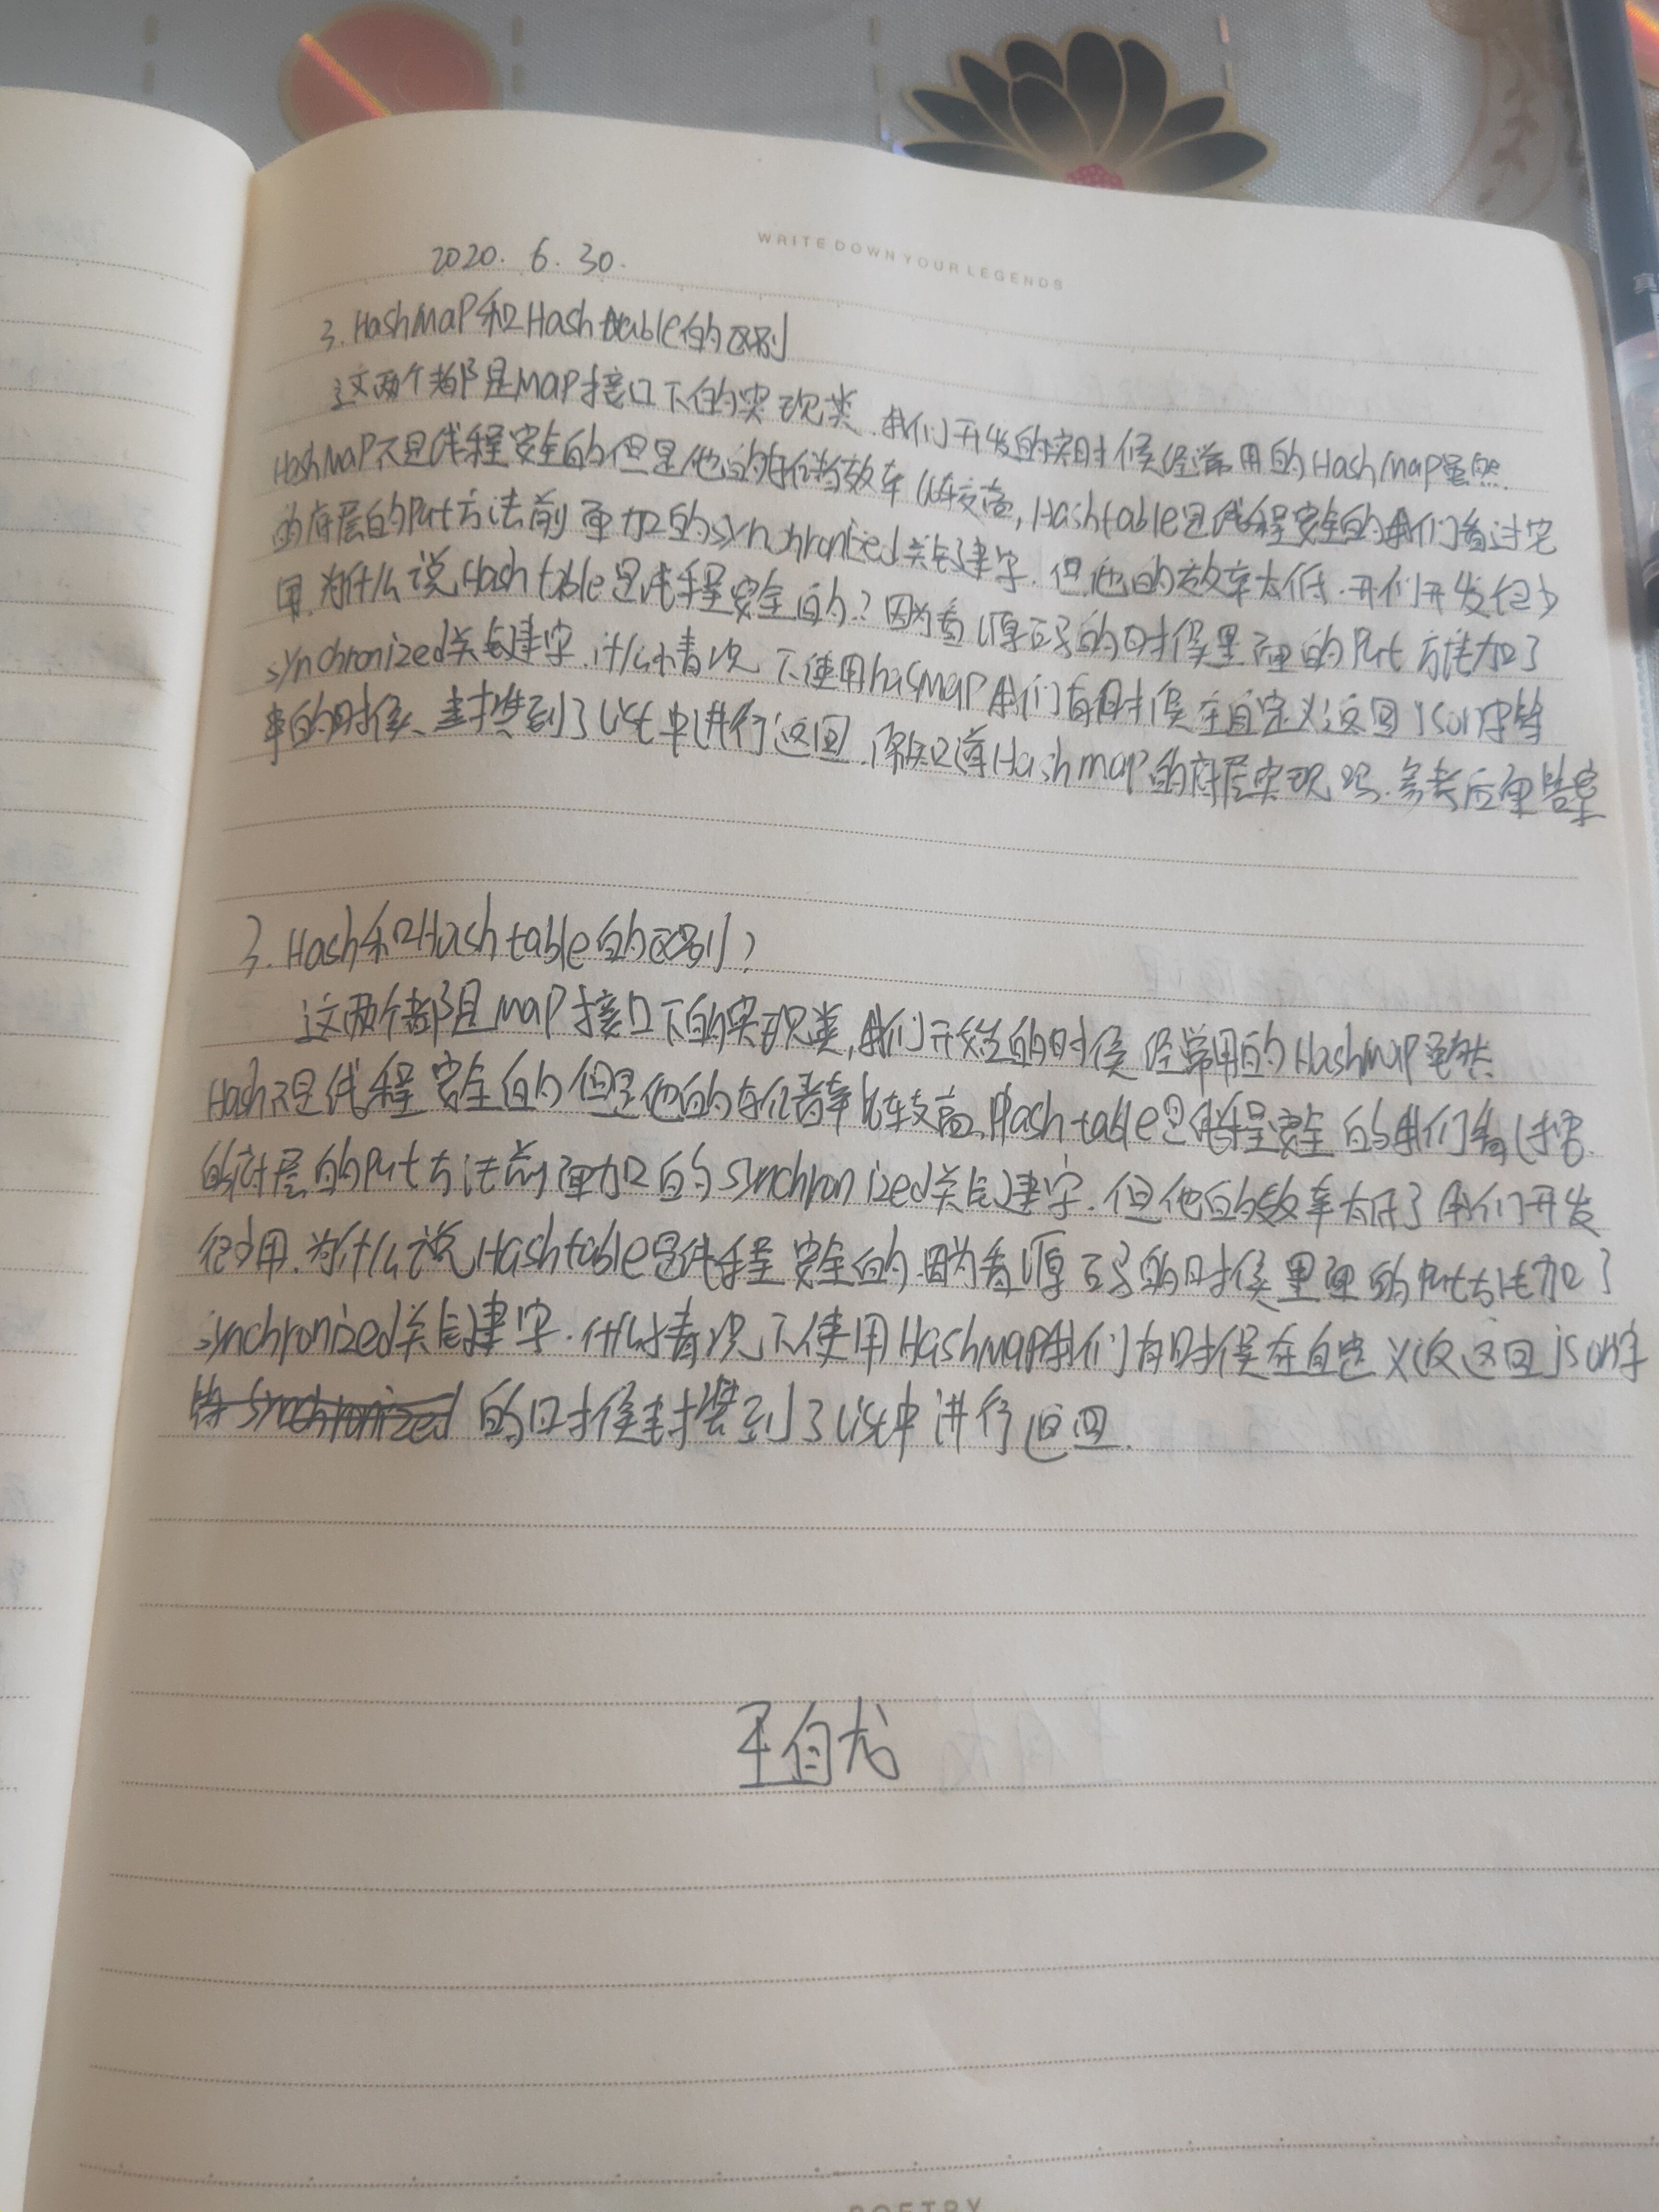 WRITE DOWN YOUR LEGENDS
2020. 6. 30.
3. HashMap和Hashtable的区别
这两个都是Map接口下的实现类.我们开发的时候经常用的HashMap虽然
HashMap不是线程安全的但是他的存储效率比较高,Hashtable是线程安全的我们看过它
的底层的Put方法前面加的synchronized关键字.但他的效率太低.我们开发很少
用.为什么说Hashtable是线程安全的?因为看源码的时候里面的Put方法加了
synchronized关键字.什么情况不使用hasmap我们有时候在自定义返回json字符
串的时候、封装到了list中进行返回.你知道Hashmap的底层实现吗.参考后面答案
3. Hash和Hashtable的区别?
这两个都是Map接口下的实现类,我们开发的时候经常用的HashMap虽然
Hash不是线程安全的但是他的存储率比较高,Hashtable是线程安全的我们看过它
的底层的Put方法前面加的synchronized关键字.但他的效率太低了我们开发
很少用.为什么说Hashtable是线程安全的.因为看源码的时候里面的Put方法加了
synchronized关键字.什么情况不使用HashMap我们有时候在自定义返回json字
的时候封装到了list中进行返回.
王自龙
POETRY